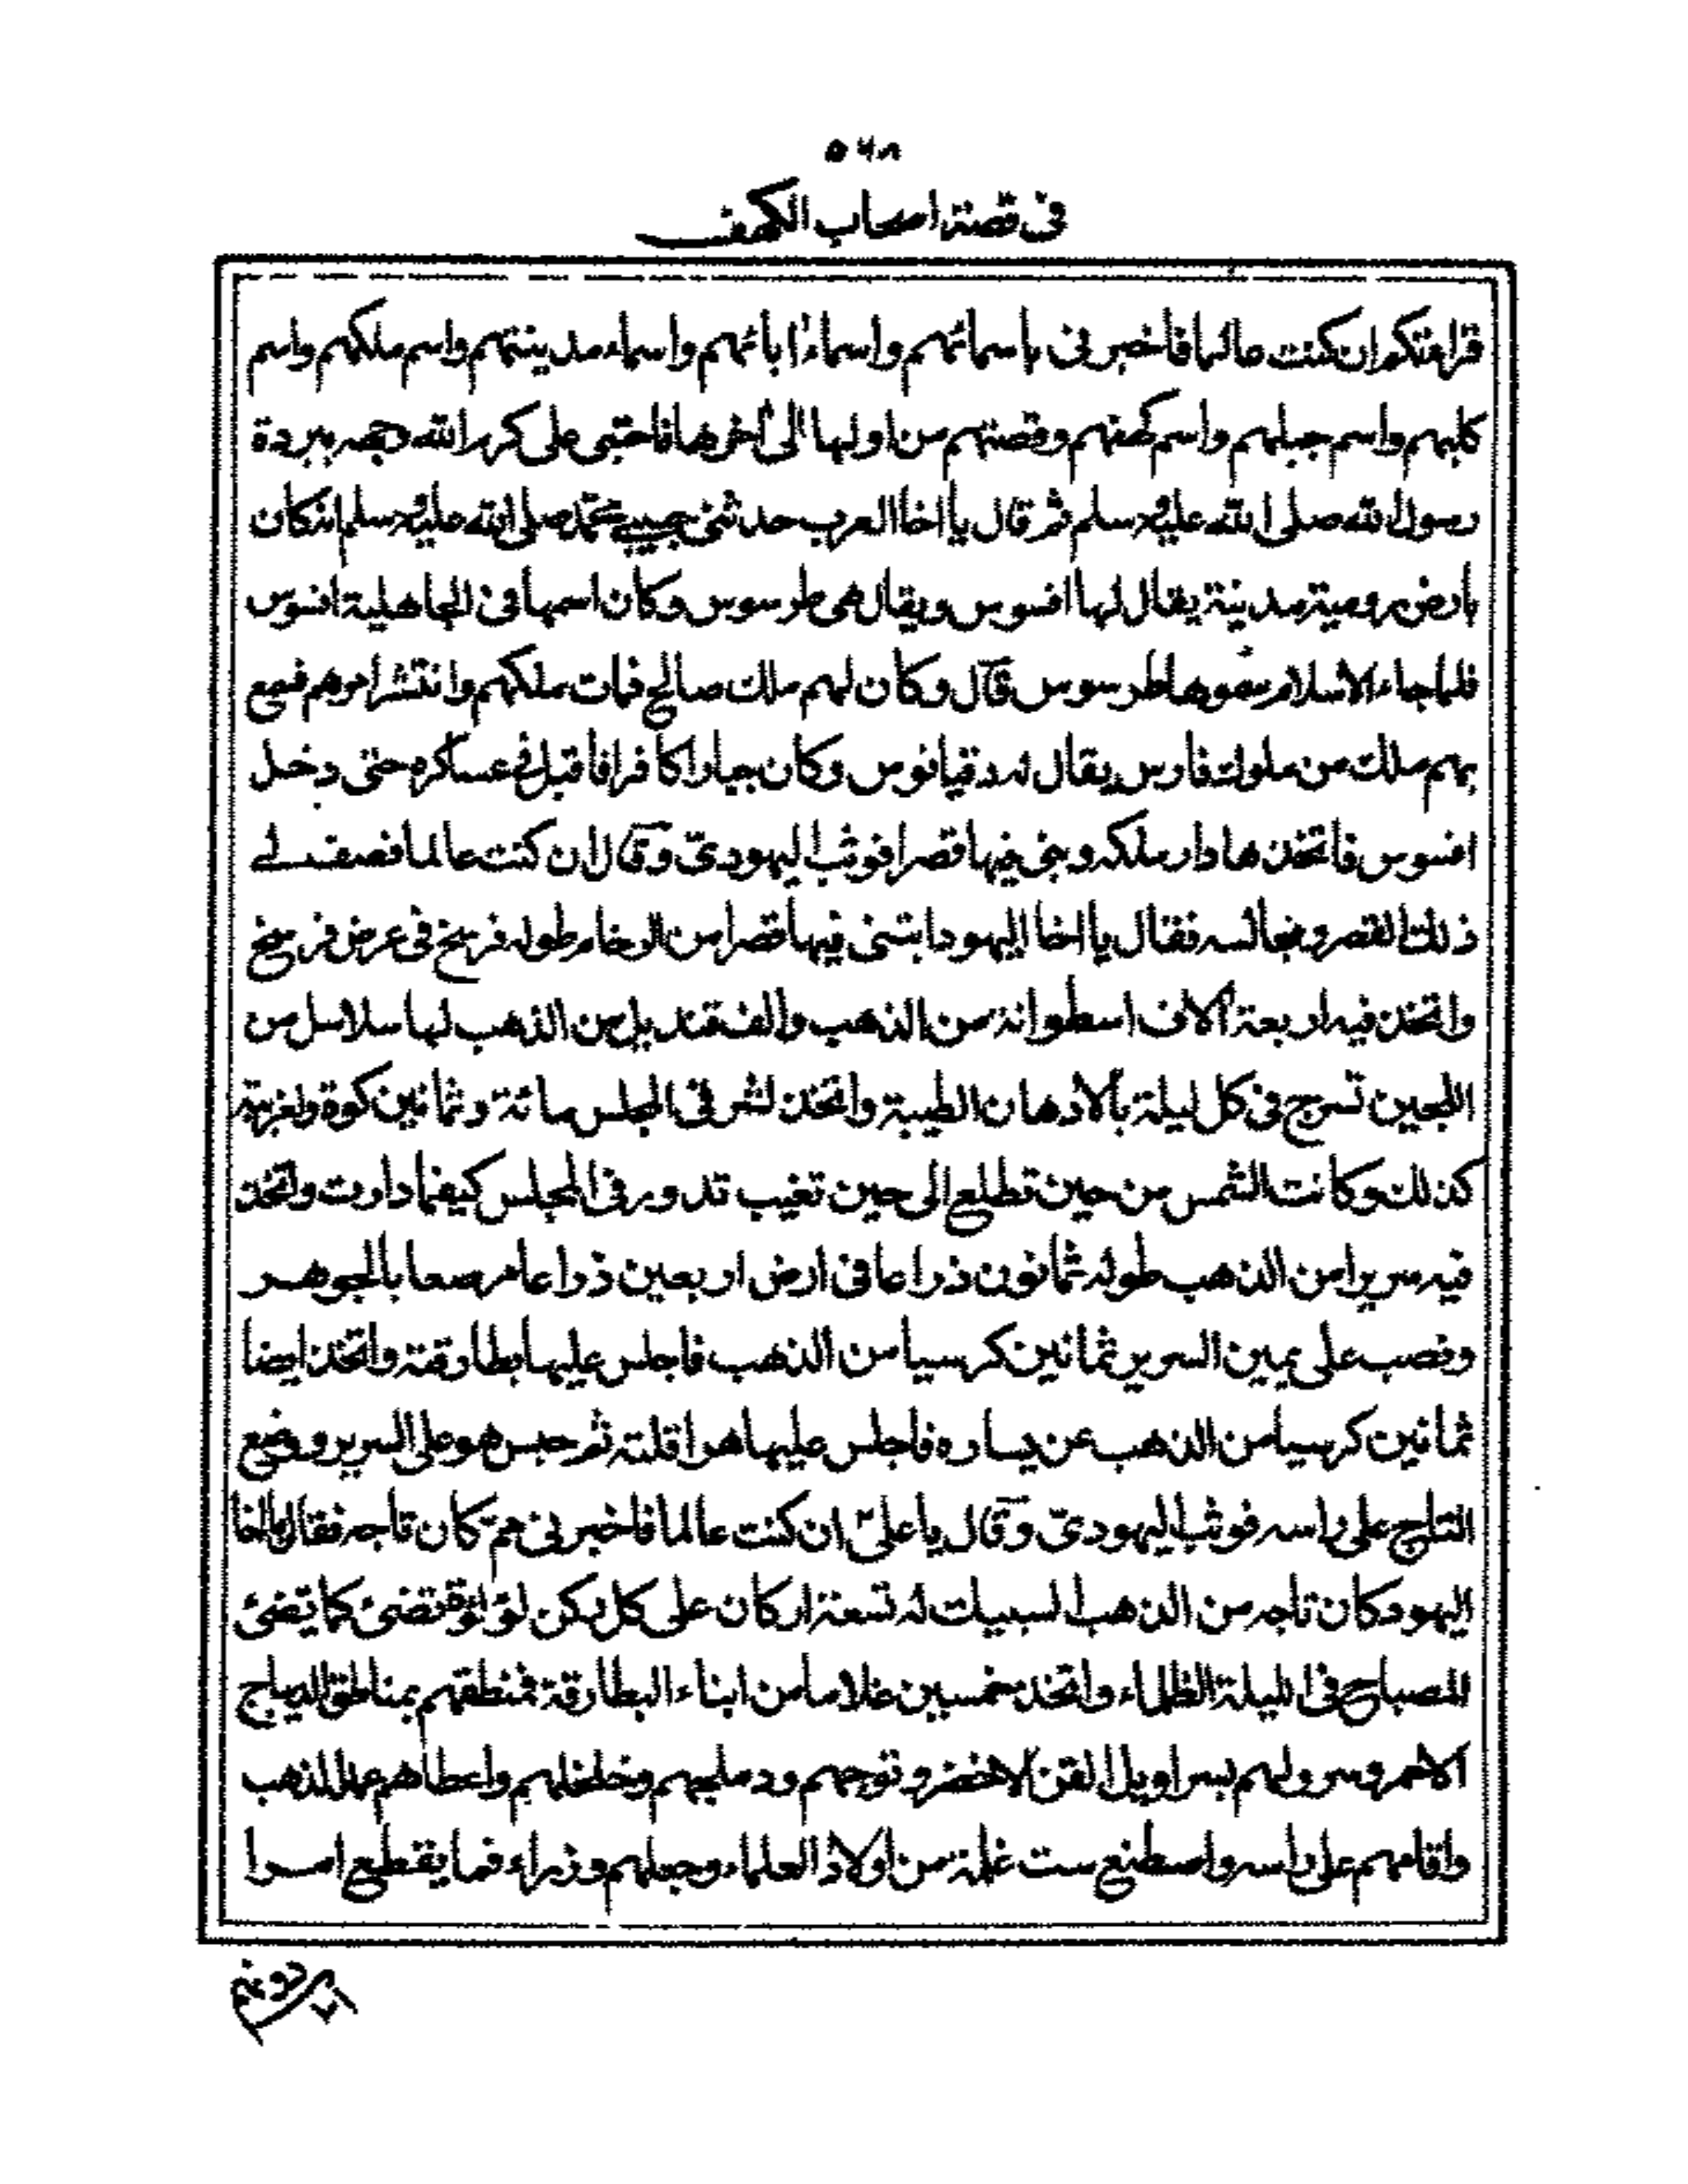 ٥٦٨
فى قصة اصحاب الكهف
قراءتكم ان كنت عالما فاخبرنى باسمائهم واسماء اٰبائهم واسماء مدينتهم واسم ملكهم واسم
كلبهم واسم جبلهم واسم كهفهم وقصتهم من اولها الى اٰخرها فاحتبى على كرم الله وجهه ببردة
رسول الله صلى الله عليه وسلم ثم قال يا اخا العرب حدثنى حبيبى محمد صلى الله عليه وسلم انه كان
بارض رومية مدينة يقال لها افسوس ويقال هى طرسوس وكان اسمها فى الجاهلية افسوس
فلما جاء الاسلام سموها طرسوس قال وكان لهم ملك صالح فمات ملكهم وانتشر امرهم فسمع
بهم ملك من ملوك فارس يقال له دقيانوس وكان جبارا كافرا فاقبل فى عساكره حتى دخل
افسوس فاتخذها دار ملكه وبنى فيها قصرا فوثب اليهودىّ وقال ان كنت عالما فصف لى
ذلك القصر ومجالسه فقال يا اخا اليهود ابتنى فيها قصرا من الرخام طوله فرسخ فى عرض فرسخ
واتخذ فيه اربعة اٰلاف اسطوانة من الذهب والف قنديل من الذهب لها سلاسل من
اللجين تسرج فى كل ليلة بالادهان الطيبة واتخذ لشرقى المجلس مائة وثمانين كوة ولغربية
كذلك وكانت الشمس من حين تطلع الى حين تغيب تدور فى المجلس كيفما دارت واتخذ
فيه سريرا من الذهب طوله ثمانون ذراعا فى ارض اربعين ذراعا مرصعا بالجوهر
ونصب على يمين السرير ثمانين كرسيا من الذهب فاجلس عليها بطارقته واتخذ ايضا
ثمانين كرسيا من الذهب عن يساره فاجلس عليها هراقلته ثم جلس هو على السرير ووضع
التاج على راسه فوثب اليهودىّ وقال يا علىّ ان كنت عالما فاخبرنى مم كان تاجه فقال يا اخا
اليهود كان تاجه من الذهب السبيك له تسعة اركان على كل ركن لؤلؤة تضئ كما يضئ
المصباح فى الليلة الظلماء واتخذ خمسين غلاما من ابناء البطارقة فمنطقهم بمناطق الديباج
الاحمر وسرولهم بسراويل القز الاخضر وتوجهم ودملجهم وخلخلهم واعطاهم عمد الذهب
واقامهم على راسه واصطنع ست غلمة من اولاد العلماء وجعلهم وزراء فما يقطع امرا
دونهم